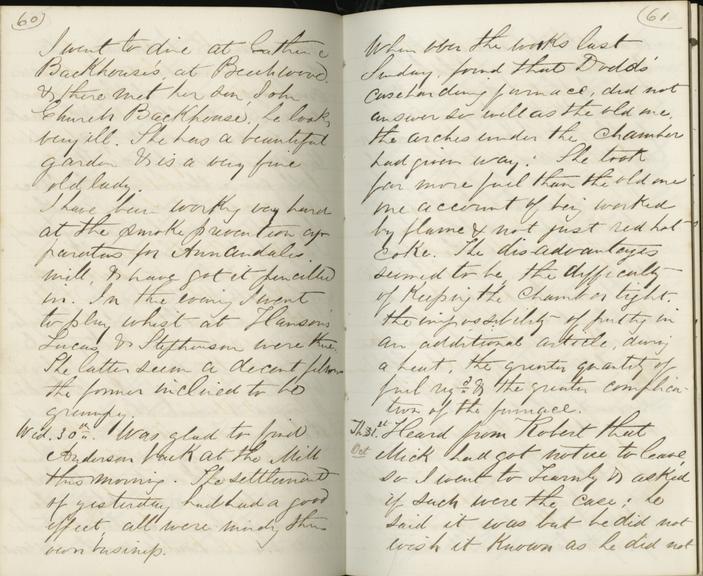 60
I went to dine at Catherine
Backhouse's, at Beechwood.
& there met her son, John
Church Backhouse, he looks
very ill. She has a beautiful
garden & is a very fine
old lady.
I have been working very hard
at the smoke prevention ap-
paratus for Annandale's
mill, & have got it pencilled
in. In the evening I went
to play whist at Hanson's
Lucas & Stephenson were there.
The latter seem a decent fellow
the former inclined to be
grumpy.
Wed. 30th. Was glad to find
Anderson back at the Mill
this morning. The settlement
of yesterday had had a good
effect, all were minding their
own business.
61
When over the works last
Sunday, found that Dodds'
casehardening furnace, did not
answer so well as the old one,
the arches under the Chamber
had given way. She took
far more fuel than the old one
one account of being worked
by flame & not just red hot
Coke. The disadvantages
seemed to be, the difficulty
of keeping the Chamber tight,
the impossibility of putting in
an additional article, during
a heat, the greater quantity of
fuel reqd & the greater complica-
tion of the furnace.
Th. 31st Heard from Robert that
Oct Mick had got notice to leave
so I went to & asked
if such were the case; he
said it was but he did not
wish it known as he did not